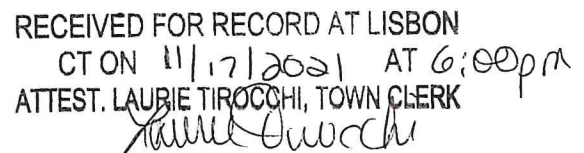 RECEIVED FOR RECORD AT LISBON
CT ON 11/17/2021 AT 6:00pm
ATTEST. LAURIE TIROCCHI, TOWN CLERK
Laurie Tirocchi